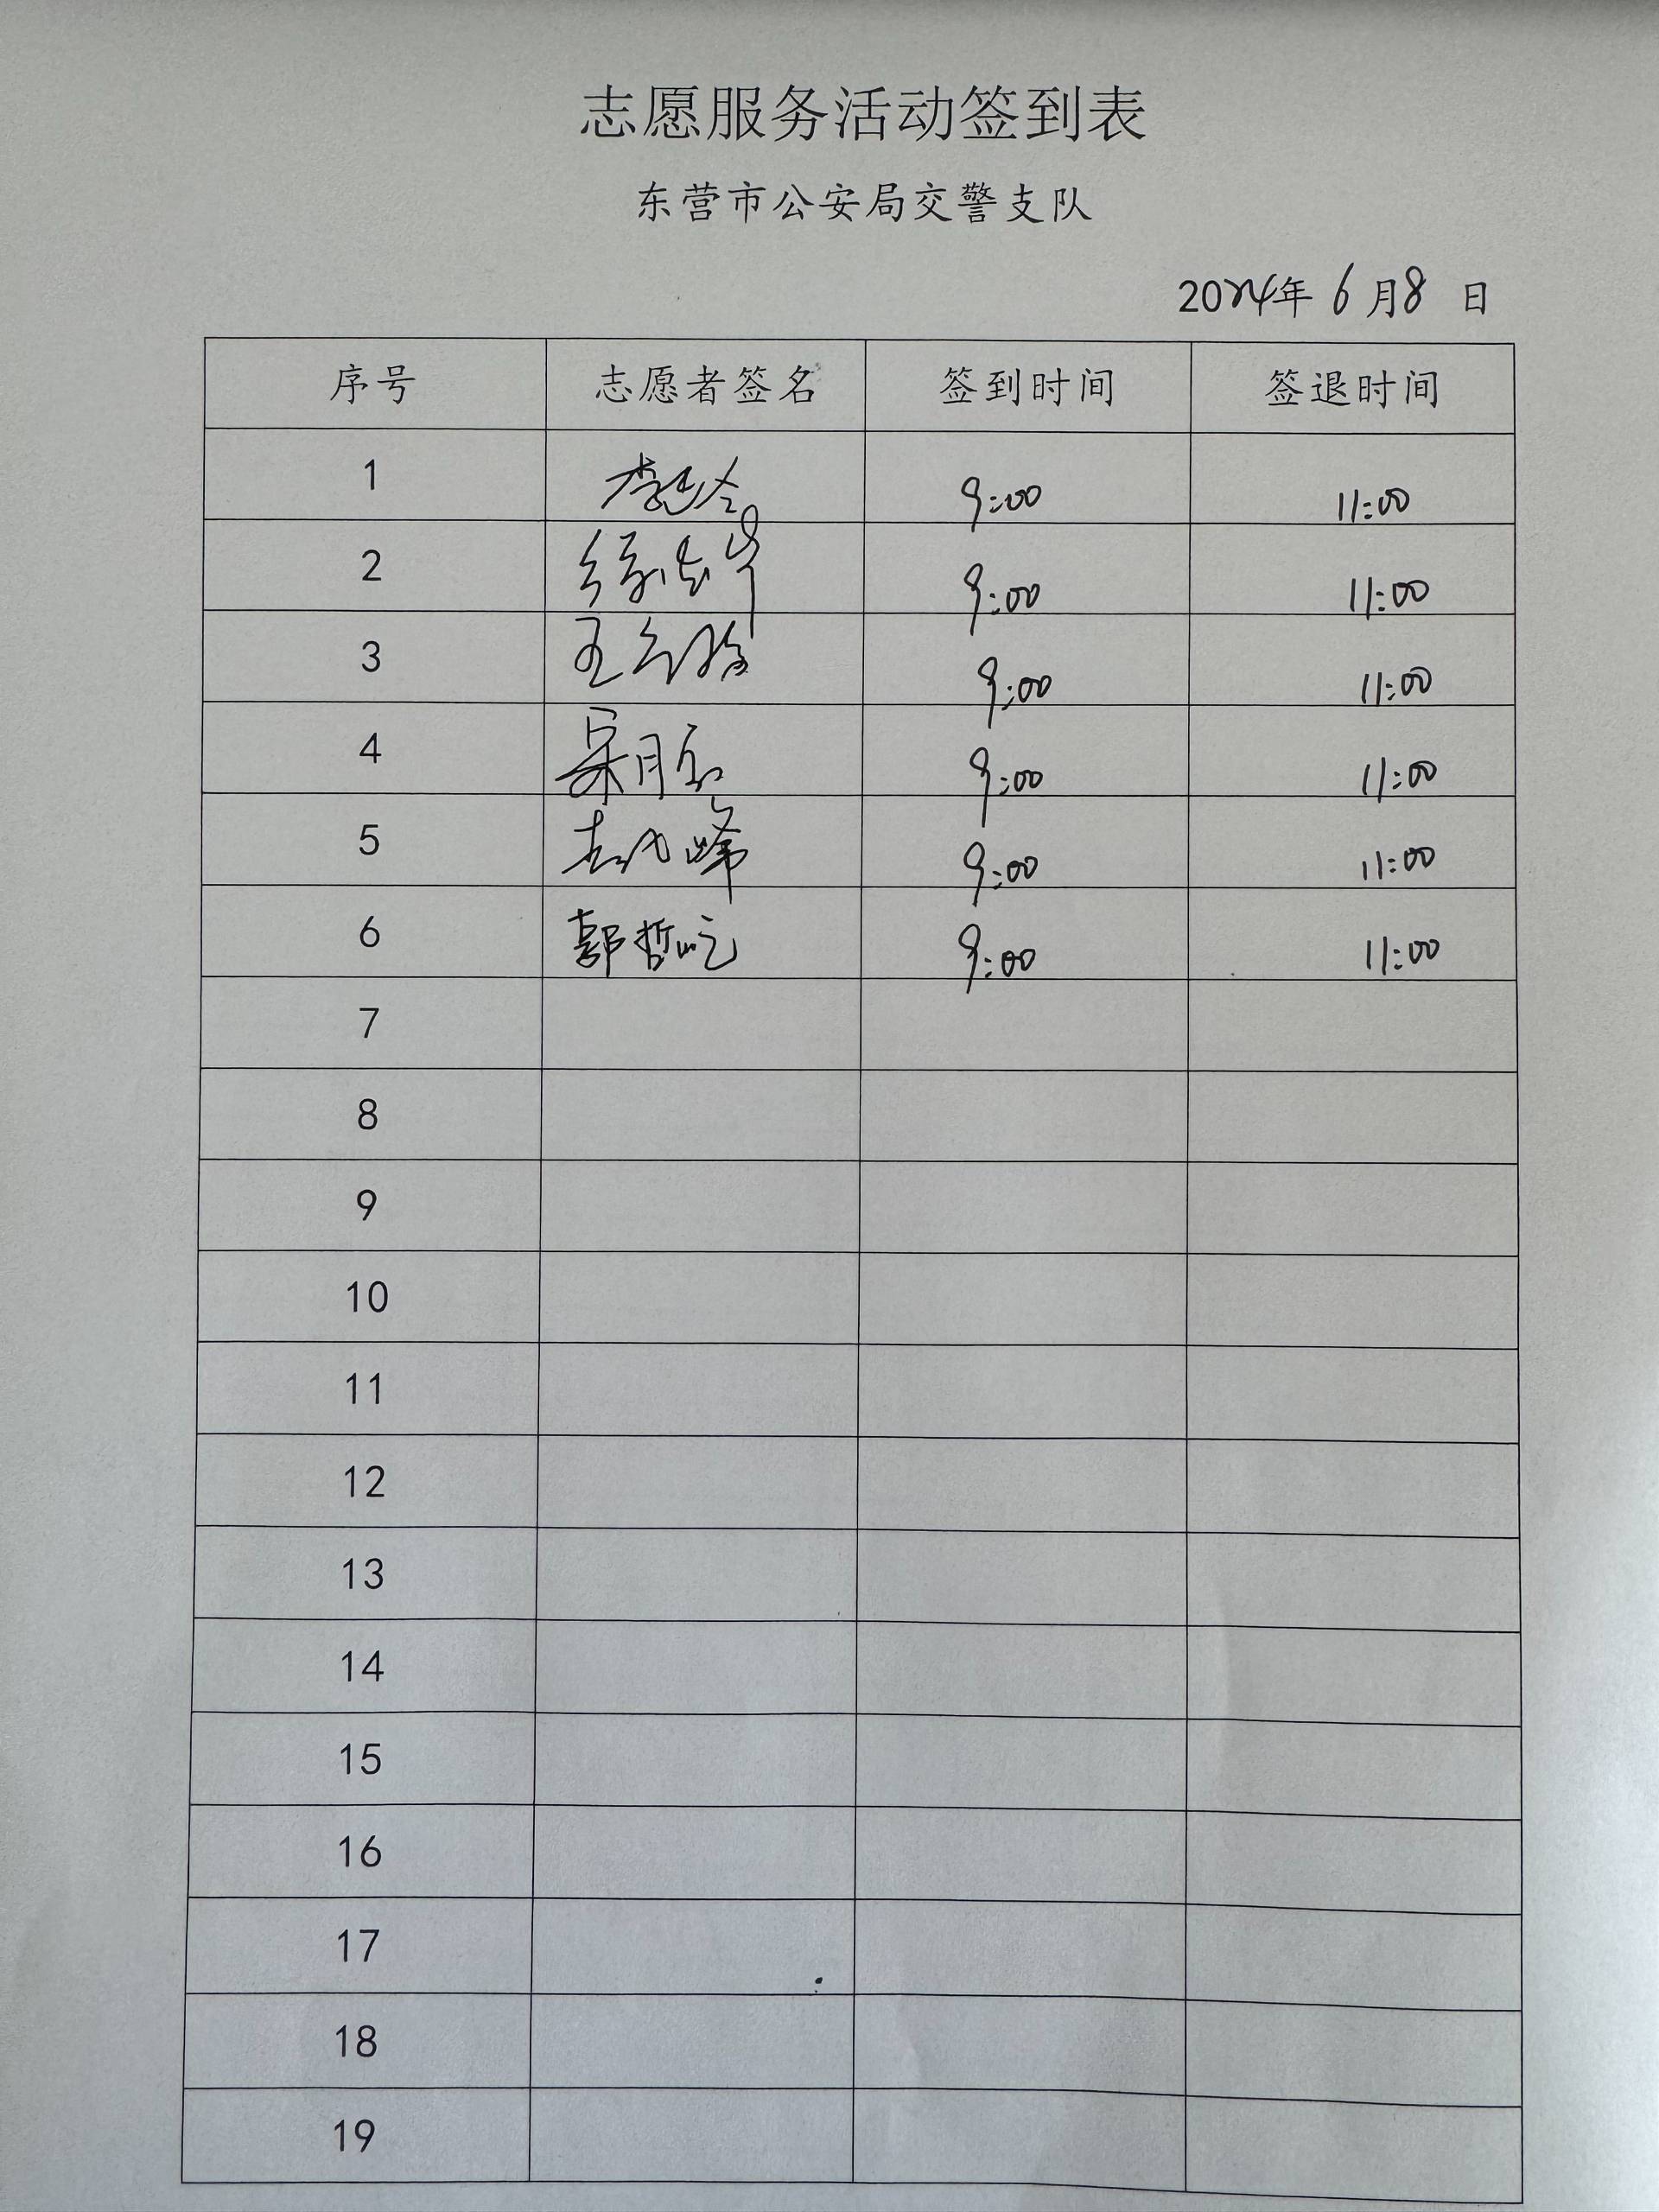 志愿服务活动签到表
东营市公安局交警支队
2024年 6 月 8 日
序号 志愿者签名 签到时间 签退时间
1 9:00 11:00
2 9:00 11:00
3 9:00 11:00
4 9:00 11:00
5 9:00 11:00
6 郭哲屹 9:00 11:00
7
8
9
10
11
12
13
14
15
16
17
18
19